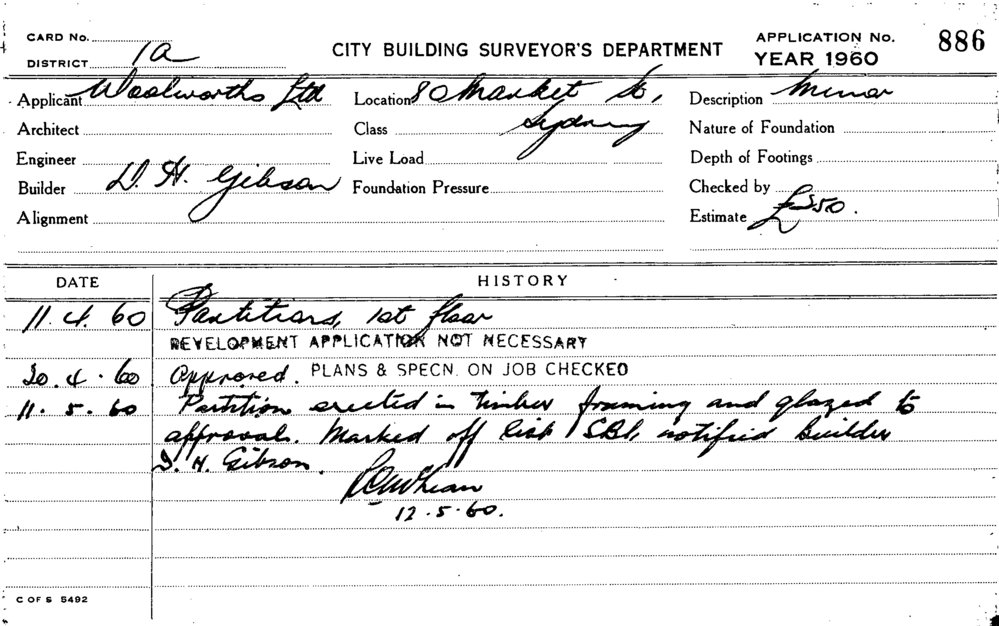 CARD No.
DISTRICT 1a
CITY BUILDING SURVEYOR'S DEPARTMENT
APPLICATION No. 886
YEAR 1960
Applicant Woolworths Ltd
Location 80 Market St,
Sydney
Description Minor
Architect
Class
Nature of Foundation
Engineer
Live Load
Depth of Footings
Builder D. H. Gibson
Foundation Pressure
Checked by
Alignment
Estimate £350.
DATE HISTORY
11.4.60 Partitions, 1st floor
DEVELOPMENT APPLICATION NOT NECESSARY
20.4.60 Approved. PLANS & SPECN. ON JOB CHECKED
11.5.60 Partition erected in timber framing and glazed to
approval. Marked off list, notified builder
D. H. Gibson.
12.5.60.
C OF S 5492